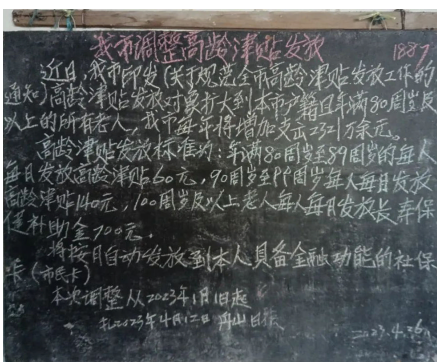 我市调整高龄津贴发放 1887
近日，我市印发《关于规范全市高龄津贴发放工作的
通知》高龄津贴发放对象扩大到本市户籍且年满80周岁及
以上的所有老人，我市每年将增加支出2321万余元。
高龄津贴发放标准为：年满80周岁至89周岁的每人
每月发放高龄津贴60元，90周岁至99周岁每人每月发放
高龄津贴140元，100周岁及以上老人每人每月发放长寿保
健补助金700元。
将按月自动发放到本人具备金融功能的社保
卡（市民卡）
本次调整从2023年1月1日起
2023年4月12日 舟山日报
2023.4.26